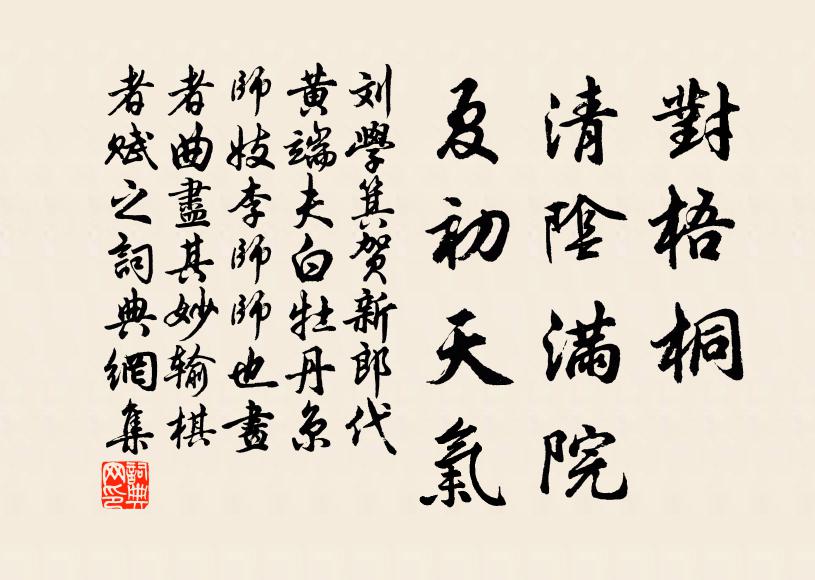 對梧桐
清陰滿院
夏初天氣
刘學箕贺新郎代
黄端夫白牡丹京
師妓李師師也畫
者曲盡其妙輸棋
者赋之詞典網集
詞典网印